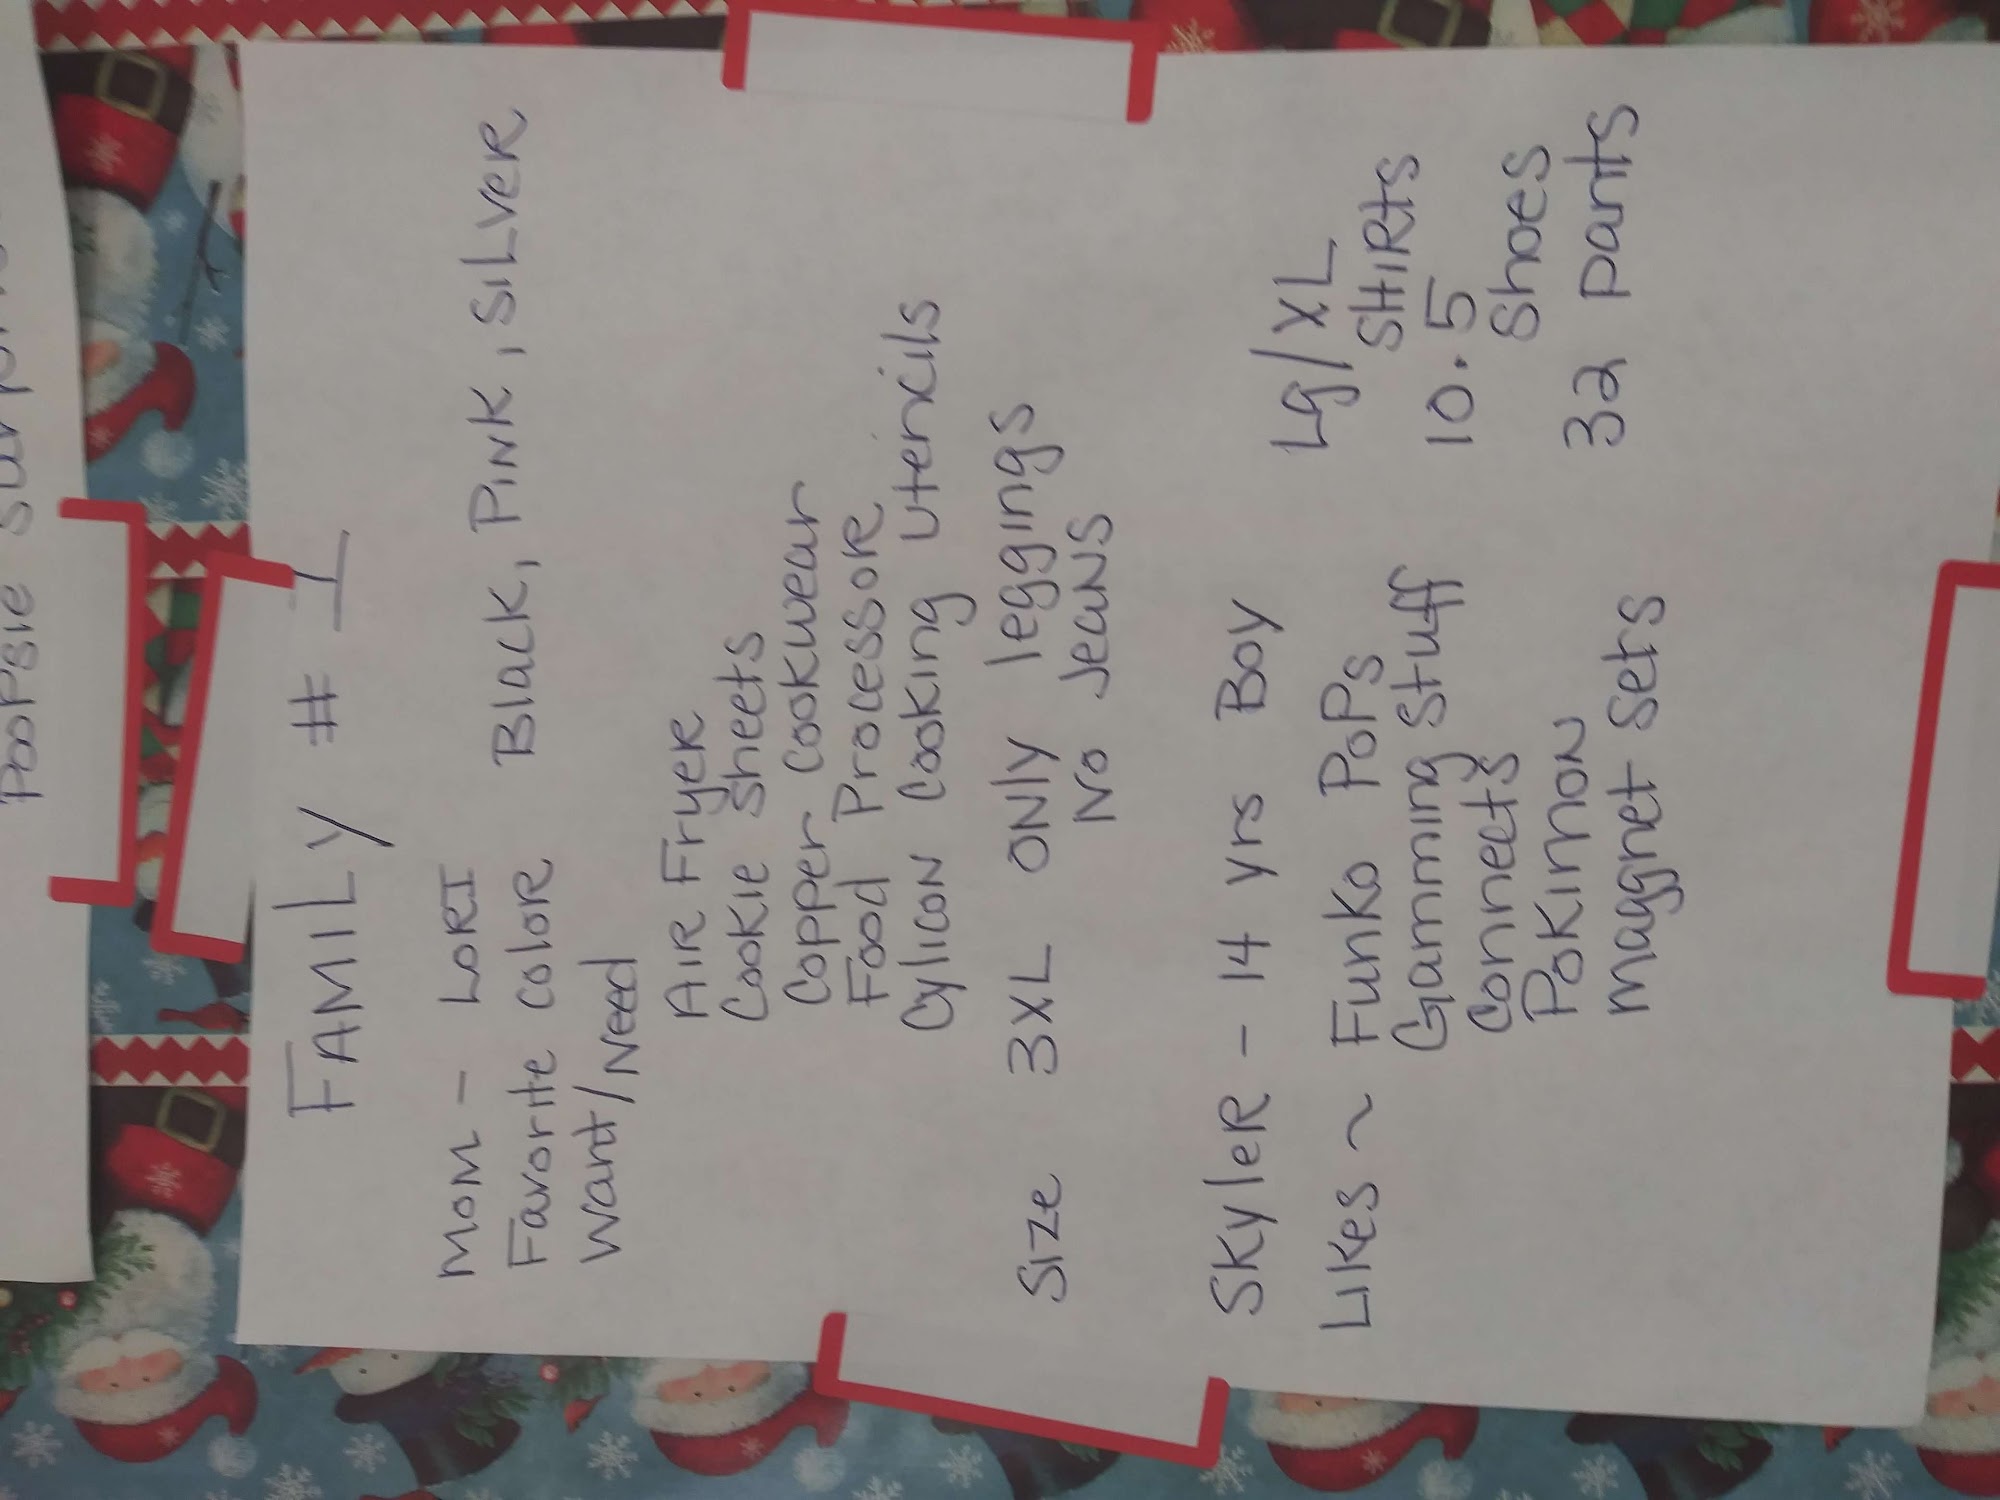 Poopsie
FAMILY # 1
MOM - LORI
Favorite COLOR Black, PINK, SILVER
Want/Need
AIR FRYER
COOKIE Sheets
Copper cookwear
Food ProcessoR
Cylicon Cooking utencils
Size 3XL ONLY leggings
No JeaNS
SKYleR - 14 yrs Boy
Lg/XL
SHIRts
Likes ~ Funko PoPs
10.5
Gamming Stuff
Shoes
Conneets
32 pants
POKIMON
Magnet Sets